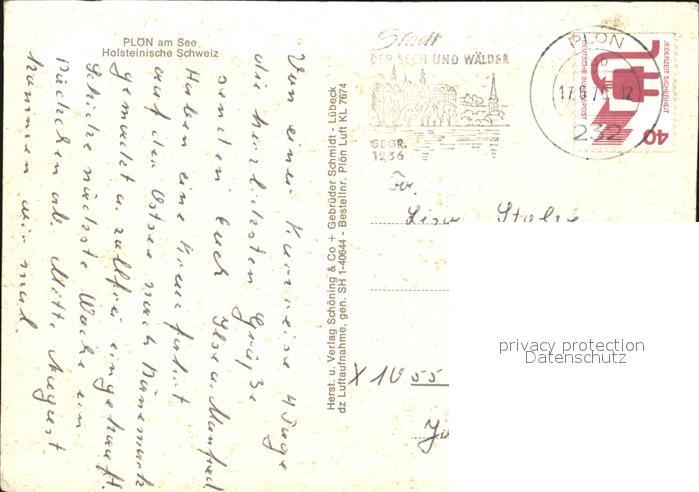 PLÖN am See
Holsteinische Schweiz
Von einer Kurzreise 4 Tage
die herzlichsten Grüße
senden Euch Ilse u. Manfred
Haben eine Kreuzfahrt
auf der Ostsee nach Dänemark
gemacht u. zollfrei eingekauft.
Schicke nächste Woche ein
Päckchen ab. Mitte August
kommen wir mal.
Herst. u. Verlag Schöning & Co + Gebrüder Schmidt - Lübeck
dz Luftaufnahme, gen. SH 1-40644 - Bestellnr. Plön Luft KL 7674
Stadt
DER SEEN UND WÄLDER
GEGR.
1236
PLÖN
17.6.7
12
232
JEDERZEIT SICHERHEIT
DEUTSCHE BUNDESPOST
40
Fr.
X 10 55
privacy protection
Datenschutz